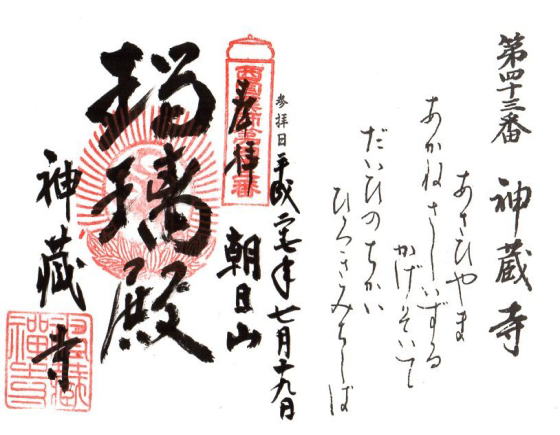 第四十三番 神蔵寺
あさひやま
あかねさしいずる
かげにそいて
だいひのちかい
ひろきみちしば
参拝日 平成二七年七月十九日
朝日山
奉拝
瑠璃殿
神蔵寺